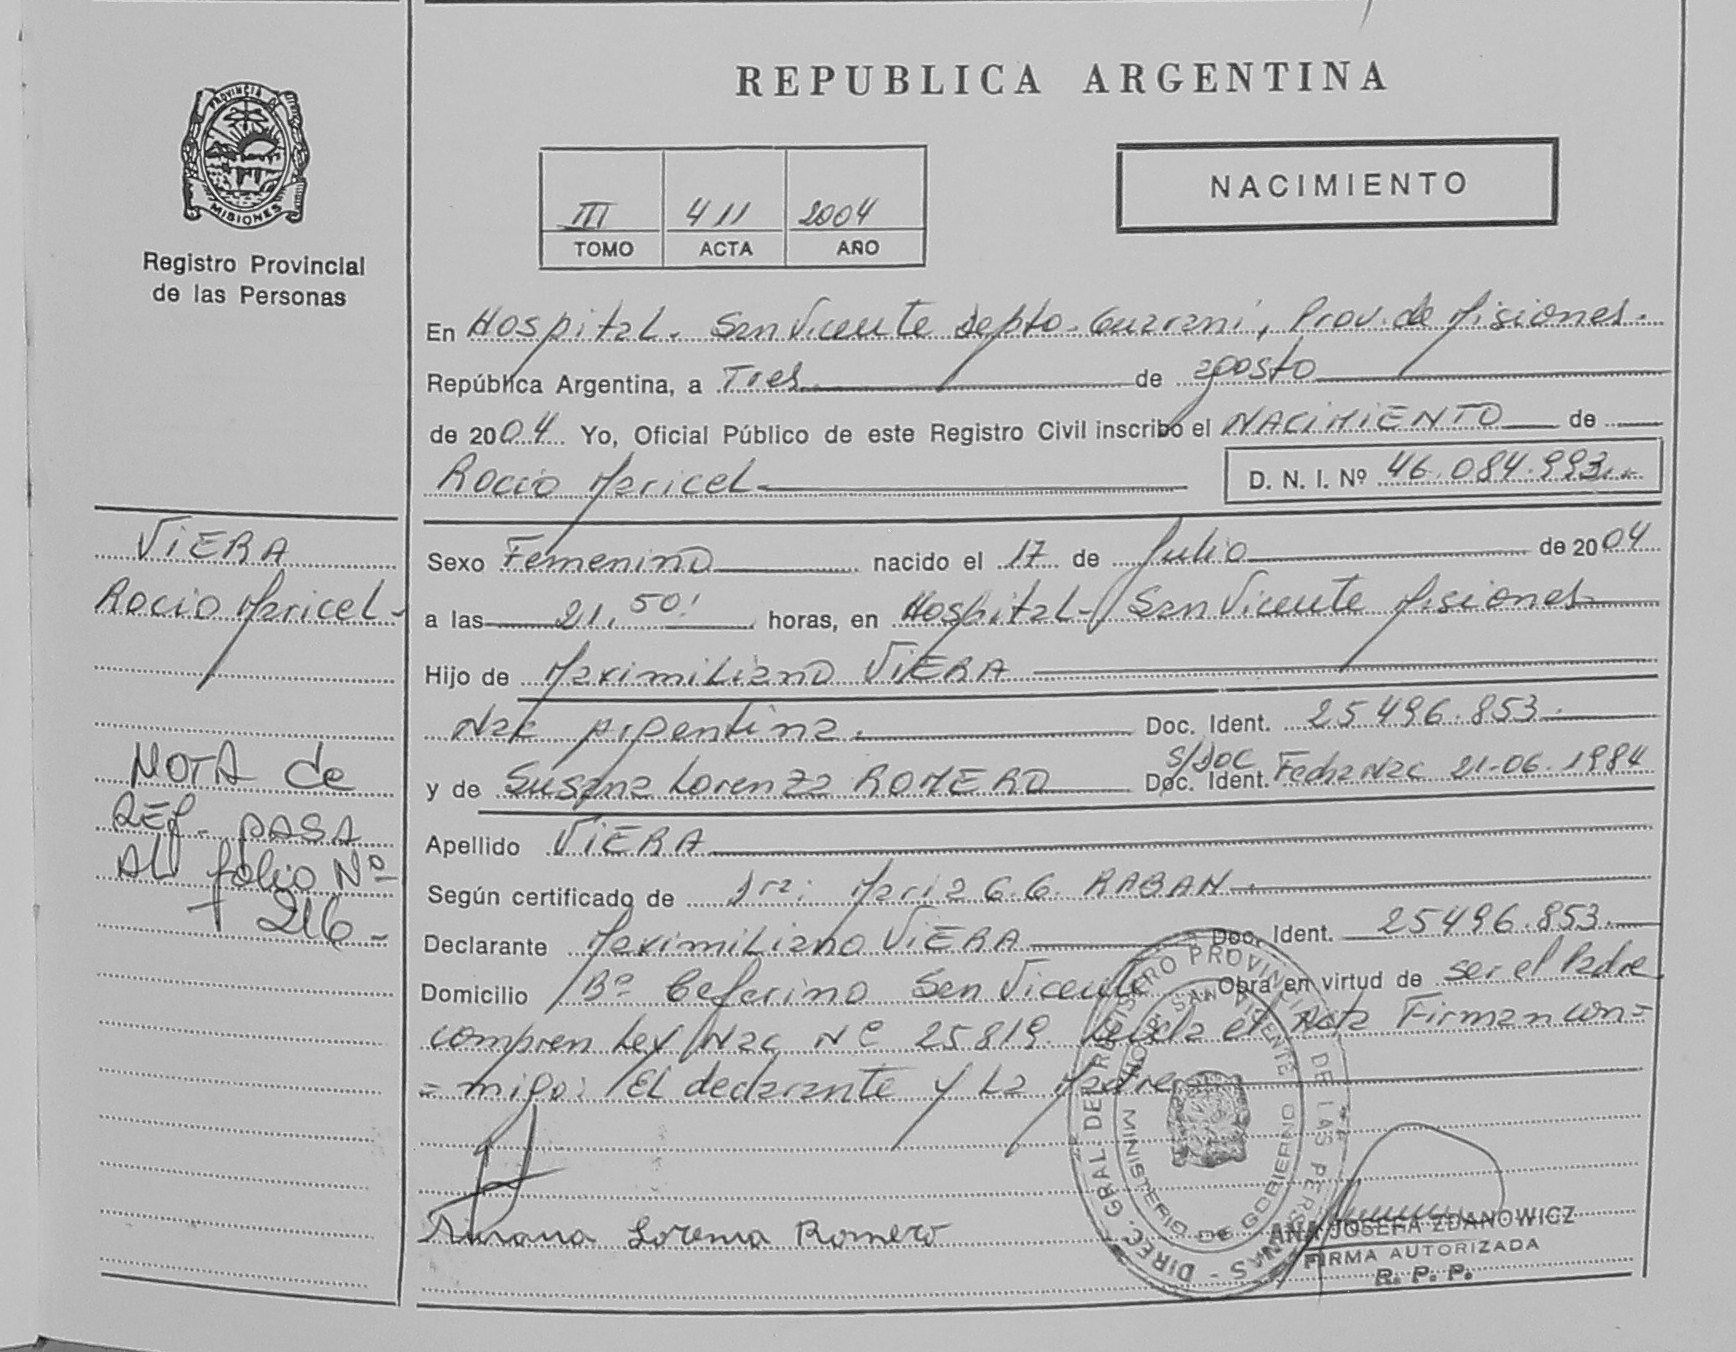 REPUBLICA ARGENTINA
PROVINCIA DE
MISIONES
Registro Provincial
de las Personas
III 411 2004
TOMO ACTA AÑO
NACIMIENTO
En Hospital. San Vicente Depto. Guarani, Prov. de Misiones.
República Argentina, a Tres de agosto
de 2004 Yo, Oficial Público de este Registro Civil inscribo el NACIMIENTO de
Rocio Maricel D. N. I. Nº 46.084.993
VIERA
Rocio Maricel
NOTA de
REF. PASA
AL folio Nº
216
Sexo Femenino nacido el 17 de Julio de 2004
a las 21,50' horas, en Hospital - San Vicente Misiones
Hijo de Maximiliano VIERA
Nac Argentina. Doc. Ident. 25496.853.
y de Susana Lorenza ROMERO S/DOC Doc. Ident. Fecha Nac 21-06.1984
Apellido VIERA
Según certificado de Dra: Maria G.G. RABAN
Declarante Maximiliano VIERA Doc. Ident. 25496.853.
Domicilio Bº Ceferino San Vicente Obra en virtud de ser el Padre
compren Ley Nac Nº 25819. Leida el Acta Firman con=
=migo: El declarante y La Madre
Lorenza Romero
DIREC. GRAL. DEL REGISTRO PROVINCIAL DE LAS PERSONAS
SAN VICENTE
MINISTERIO DE GOBIERNO
ANA JOSEFA ZDANOWICZ
FIRMA AUTORIZADA
R. P. P.